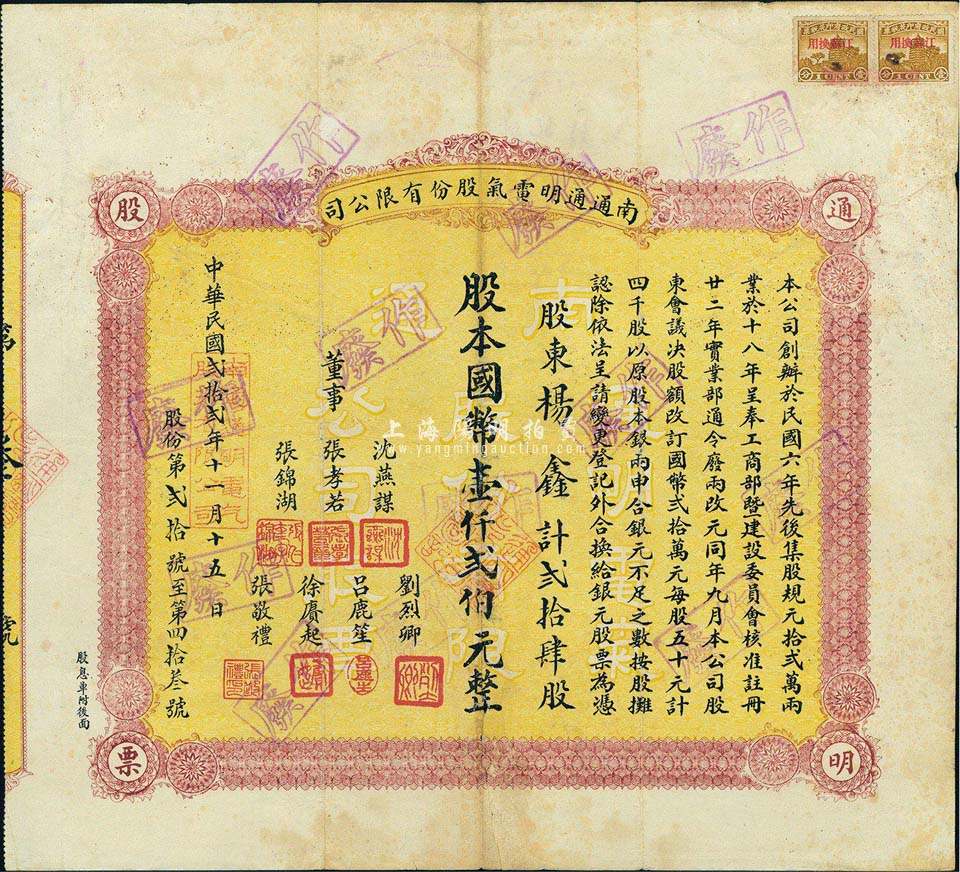 江蘇換用
江蘇換用
1 CENT
1 CENT
作廢
作廢
作廢
南通通明電氣股份有限公司
通
明
股
票
本公司創辦於民國六年先後集股規元拾貳萬兩
業於十八年呈奉工商部暨建設委員會核准註冊
廿二年實業部通令廢兩改元同年九月本公司股
東會議決股額改訂國幣弍拾萬元每股五十元計
四千股以原股本銀兩申合銀元不足之數按股攤
認除依法呈請變更登記外合換給銀元股票為憑
股東楊鑫計弍拾肆股
股本國幣壹仟弍伯元整
董事
沈燕謀
張孝若
張錦湖
劉烈卿
呂鹿笙
徐賡起
張敬禮
中華民國弍拾弍年十一月十五日
股份第弍拾號至第四拾叁號
股息單附後面
上海陽明拍賣
www.yangmingauction.com